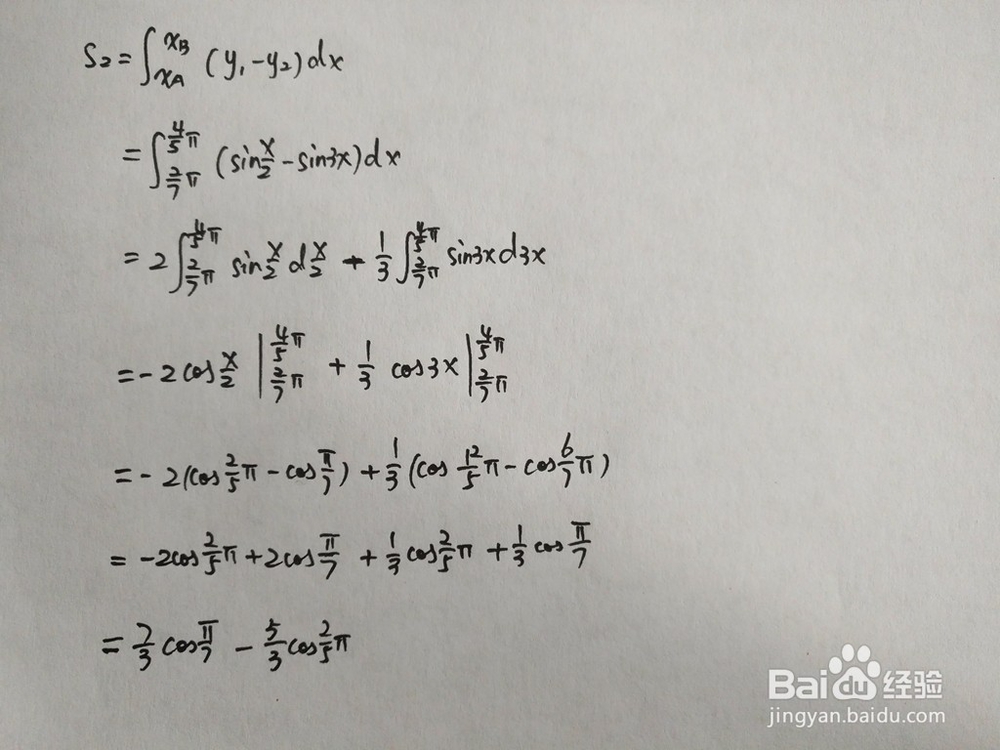 S₂ = ∫_{x_A}^{x_B} (y₁ - y₂) dx
= ∫_{2/7 π}^{4/5 π} (sin x/2 - sin3x) dx
= 2 ∫_{2/7 π}^{4/5 π} sin x/2 d x/2 + 1/3 ∫_{2/7 π}^{4/5 π} sin3x d3x
= -2 cos x/2 |_{2/7 π}^{4/5 π} + 1/3 cos3x |_{2/7 π}^{4/5 π}
= -2(cos 2/5 π - cos π/7) + 1/3 (cos 12/5 π - cos 6/7 π)
= -2cos 2/5 π + 2cos π/7 + 1/3 cos 2/5 π + 1/3 cos π/7
= 7/3 cos π/7 - 5/3 cos 2/5 π
Baidu 经验
jingyan.baidu.com